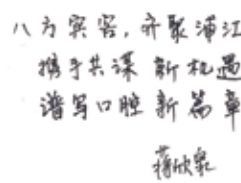 八方宾客，齐聚浦江
携手共谋 新机遇
谱写口腔 新篇章
蒋欣泉